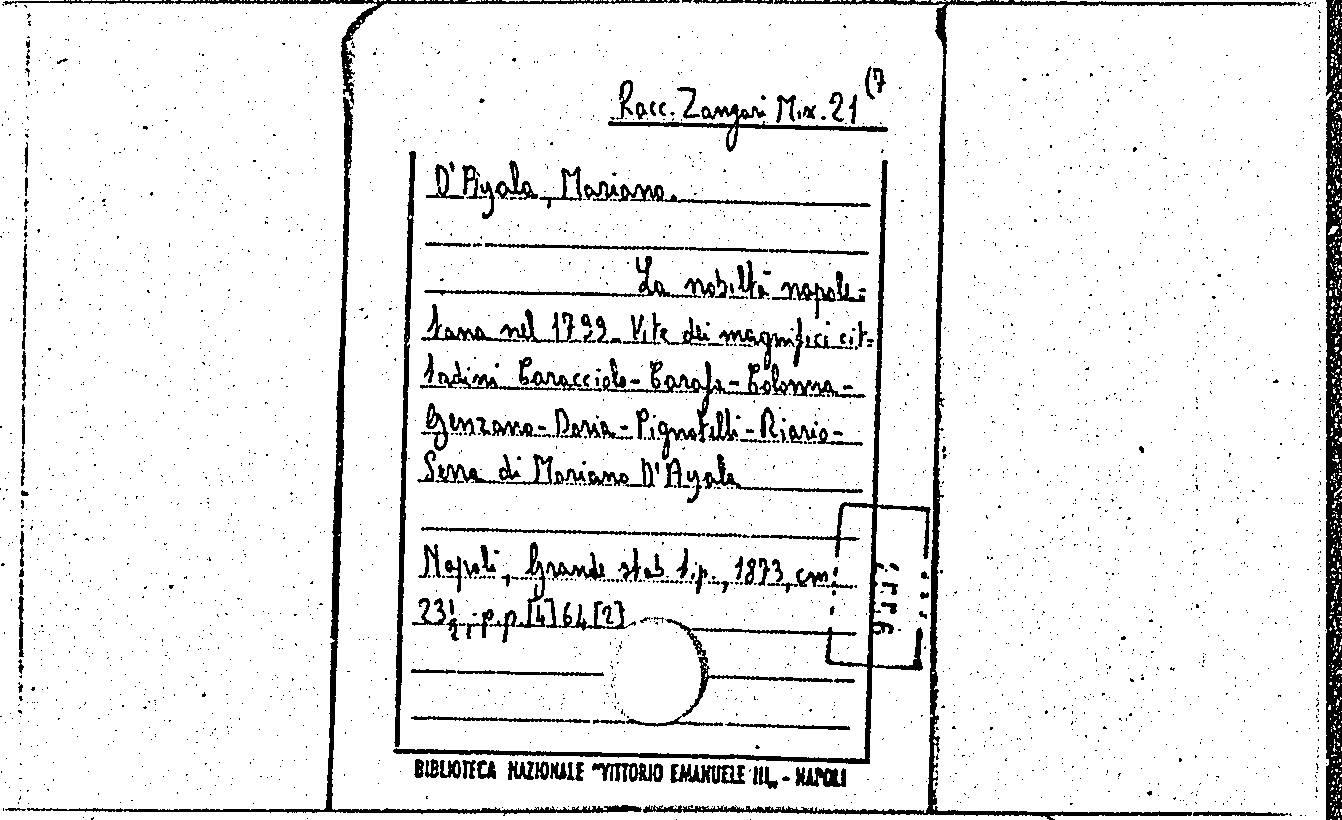 Racc. Zangari Mix. 21 (7
D'Ayala, Mariano.
La nobiltà napole=
tana nel 1799. Vite dei magnifici cit=
tadini Caracciolo - Carafa - Colonna -
Genzano - Doria - Pignatelli - Riario -
Serra di Mariano D'Ayala
Napoli, Grande stab. tip., 1873, cm.
23½, p.p. [4] 64 [2]
BIBLIOTECA NAZIONALE "VITTORIO EMANUELE III„ - NAPOLI